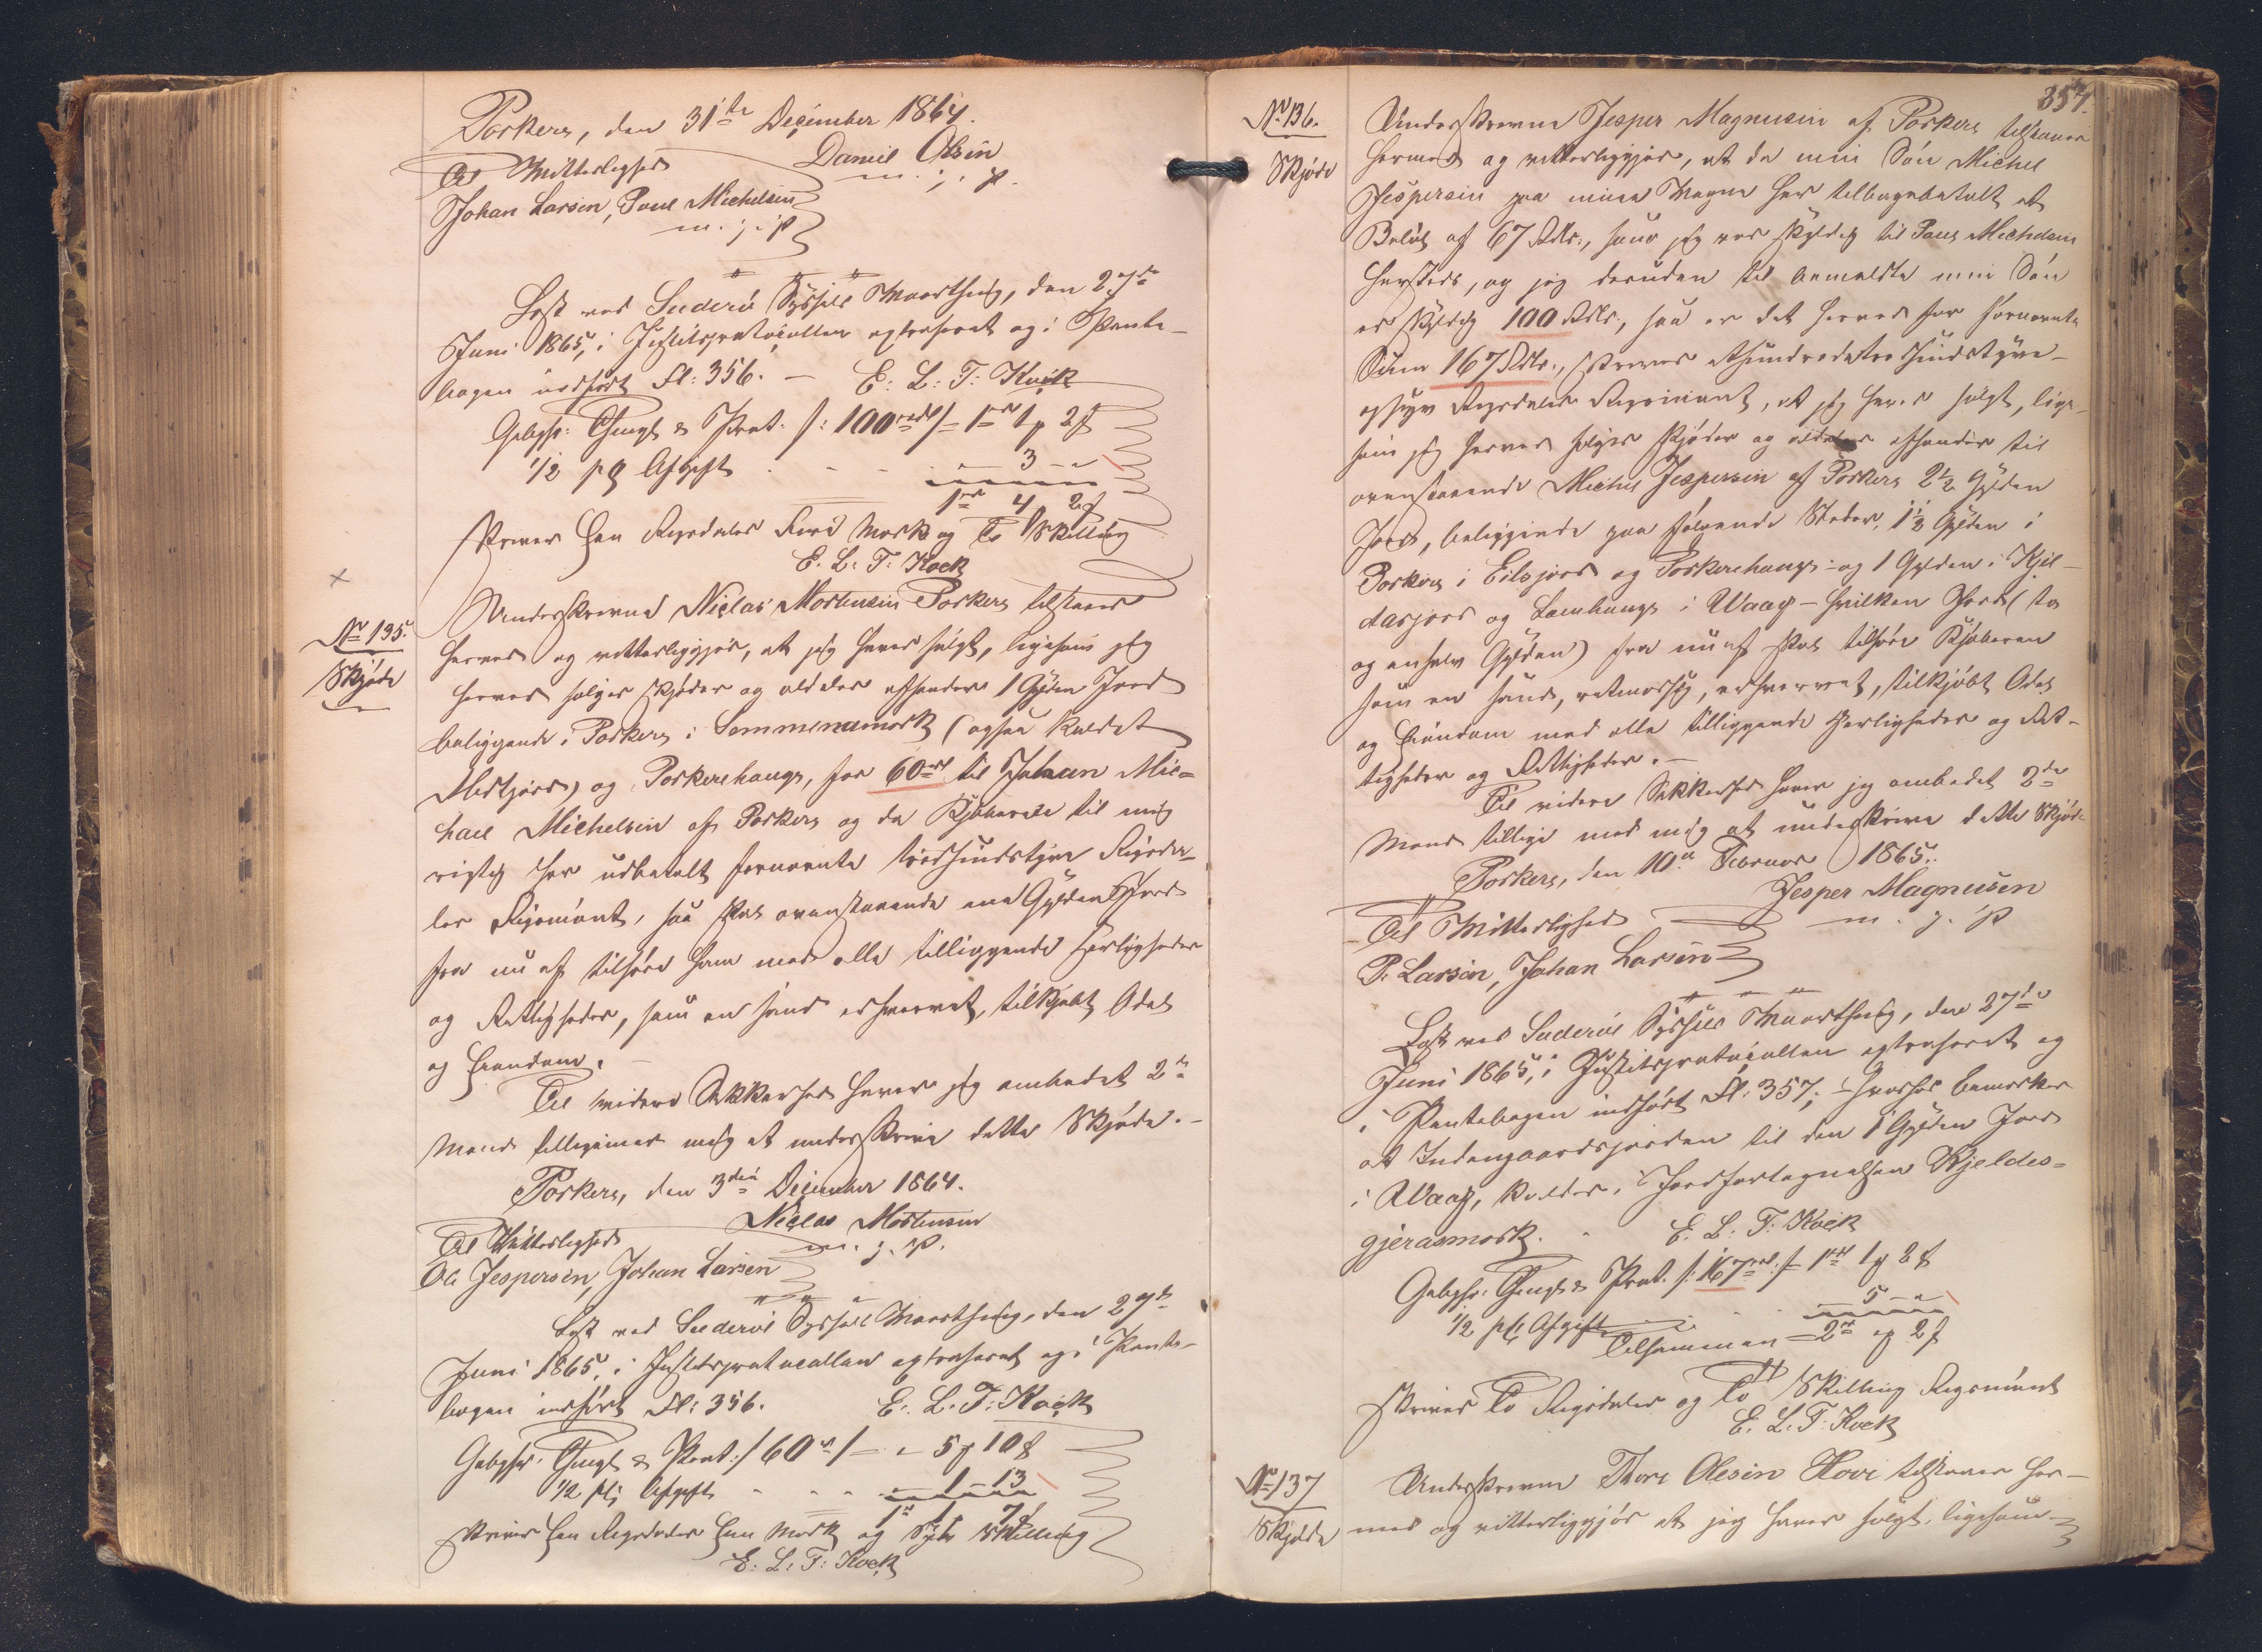 Porkere, den 31te December 1864.
Daniel Olsen
m. j. p.
Til Vitterlighed
Johan Larsen, Poul Michelsen
m. j. p
Læst ved Suderø Syssels Vaarthing, den 27de
Juni 1865, i Justitsprotocollen extraheret og i Pante-
bogen indført Fl: 356. — E: L: T: Kock
Gebyhr: Thingl & Prot. /: 100 rd /= 1 rd 1 ƒ 2 ß
1/2 pCt Afgift . - - - - 3 - "
1 rd 4 2 ß
skriver Een Rigsdaler Fire Mark og To Skilling
E. L: T: Kock
No 135.
Skjøde
Underskrevne Niclas Mortensen Porkere tilstaaer
herved og vitterliggjør, at jeg haver solgt, ligesom jeg
herved sælger skjøder og aldeles afhænder 1 Gylden Jord
beliggende i Porkere i Sommenamørk (ogsaa kaldet
Mestjord) og Porkerehauge, for 60 rd til Johan Mic-
hael Michelsen af Porkere og da Kjøberen til mig
rigtig har udbetalt fornævnte tredsindstyve Rigsda-
ler Rigsmønt, saa skal ovenstaaende ene Gylden Jord
fra nu af tilhøre ham med alle tilliggende Herligheder
og Rettigheder, som en sand erhvervet, tilkjøbt Odel
og Eiendom. —
Til videre Sikkerhed haver jeg ombedet 2de
Mænd tilligemed mig at underskrive dette Skjøde. -
Porkere, den 3die December 1864.
Niclas Mortensen
m. j. p.
Til Vitterlighed
Ole Jespersen, Johan Larsen
Læst ved Suderø Syssels Vaarthing, den 27de
Juni 1865, i Justitsprotocollen extraheret og i Pante-
bogen indført Fl: 356. E. L. T: Kock
Gebyhr. Thingl & Prot: / 60 rd / - " 5 ƒ 10 ß
1/2 pCt Afgift - " - - 1 - 13
1 rd 1 7 ß
skriver Een Rigsdaler Een Mark og Syv Skilling
E. L: T: Kock
357.
No 136.
Skjøde
Underskrevne Jesper Magnusen af Porkere tilstaaer
hermed og vitterliggjør, at da min Søn Michel
Jespersen paa mine Vegne har tilbagebetalt et
Beløb af 67 Rdlr., som jeg var skyldig til Poul Michelsen
hersteds, og jeg desuden til bemeldte min Søn
er skyldig 100 Rdlr., saa er det herved for fornævnte
Sum 167 Rdlr., skriver ethundredetredsindstyve-
ogsyv Rigsdaler Rigsmønt, at jeg haver solgt, lige-
som jeg herved sælger skjøder og aldeles afhænder til
ovenstaaende Michel Jespersen af Porkere 2 1/2 Gylden
Jord, beliggende paa følgende Steder, 1 1/2 Gylden i
Porkere i Eilsjord og Porkerehauge - og 1 Gylden i Kjel-
dasjord og Lamhauge i Waag - hvilken Jord (to
og enhalv Gylden) fra nu af skal tilhøre Kjøberen
som en sand, retmæssig, erhvervet, tilkjøbt Odel
og Eiendom med alle tilliggende Herligheder og Ret-
tigheder og Rettigheder. —
Til videre Sikkerhed haver jeg ombedet 2de
Mænd tillige med mig at underskrive dette Skjøde
Porkere, den 10de Februar 1865.
Jesper Magnusen
m. j. p
Til Vitterlighed
P. Larsen, Johan Larsen
Læst ved Suderø Syssels Vaarthing, den 27de
Juni 1865, i Justitsprotocollen extraheret og
i Pantebogen indført Fl: 357; - hvorhos bemærkes
at Indengaardsjorden til den 1 Gylden Jord
i Waag, kaldes i Jordfortegnelsen Kjeldes-
gjerasmørk. - E. L: T: Kock
Gebyhr: Thingl & Prot. /: 167 rd :/= 1 rd 1 ƒ 2 ß
1/2 pCt Afgift - - - 5 - "
Tilsammen = 2 rd " ƒ 2 ß
skriver To Rigsdaler og To Skilling Rigsmønt
E. L. T: Kock
No 137
Skjøde
Underskrevne Thore Olesen Hove tilstaaer her-
med og vitterliggjør at jeg haver solgt, ligesom